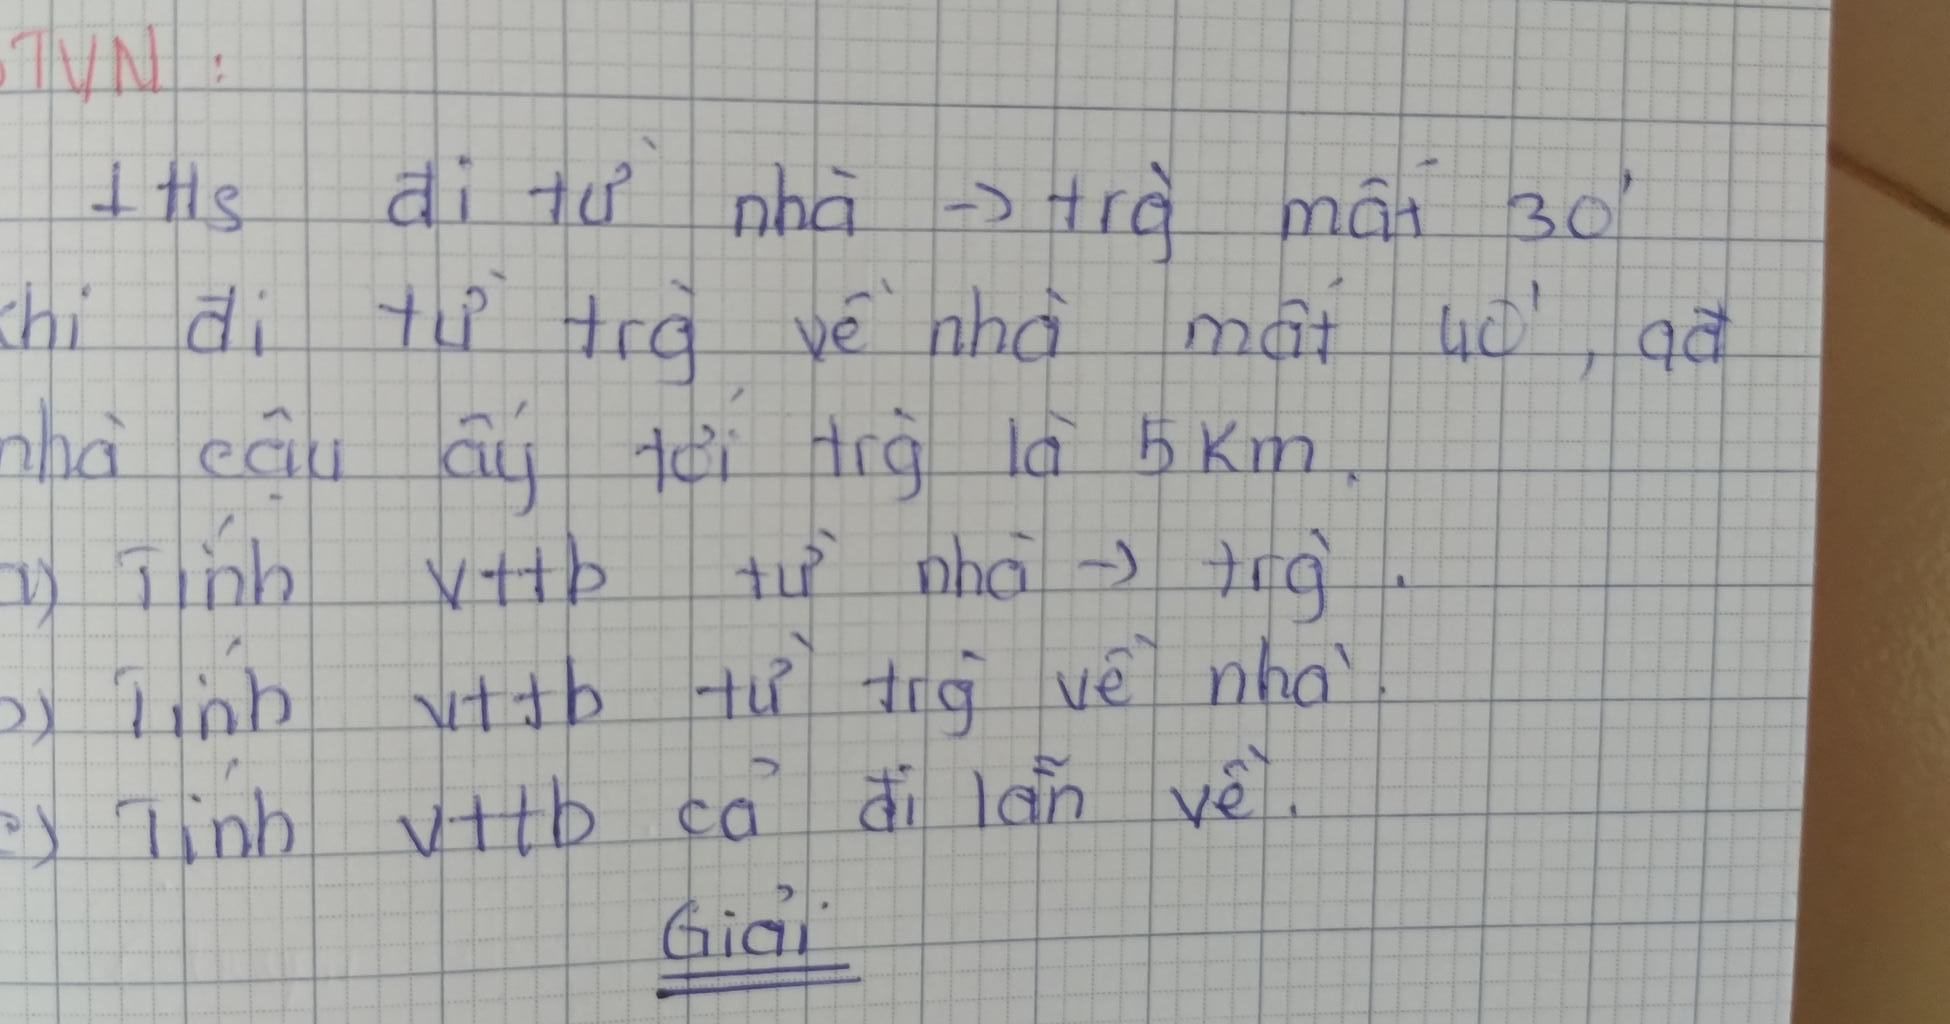 BTVN :
1 Hs đi từ nhà -> trg̀ mất 30'
khi đi từ trg̀ về nhà mất 40', qđ
nhà cậu ấy tới trg̀ là 5 Km.
a) Tính vttb từ nhà -> trg̀.
b) Tính vttb từ trg̀ về nhà.
c) Tính vttb cả đi lẫn về.
Giải